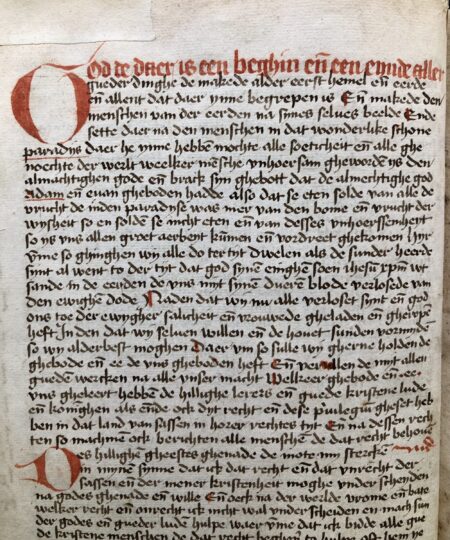 God de daer is een beghin en̄ een einde aller
gueder dinghe de makede alder eerst hemel en̄ eerde
en̄ allent dat daer ynne begrepen is En̄ makede den
menschen van der eerden na sines selues beelde Ende
sette daer na den menschen in dat wonderlike schone
paradijs daer he ynne hebben mochte alle soeticheit en̄ alle ghe
noechte der werlt weelker mensche vnhoersam ghewordē ys den
almachtighen gode en̄ brack syn ghebott dat de almechtighe god
Adam en̄ euan gheboden hadde also dat se eten solde van alle de
vrucht de inden paradise was mer van den bome en̄ vrucht der
wysheit so en solden se nicht eten en̄ van desses vnhoerssenheit
so ys vns allen groet aerbeit kūmen en̄ vordreet ghekomen
vme so ghinghen wy alle do ter tyt dwelen als de sunder heerde
sint al went to der tyt dat god synē enighē soen ihesū xpm wt
sande in de eerden de vns mit synē duerē blode verlosede van
den ewighē dode Naden dat wy nu alle verloset synt en̄ god
ons toe der ewygher salicheit en̄ vrouwede gheladen en̄
heft In den dat wy seluen willen en̄ de houet sunden vormide
so wy alderbest moghen Daer vm so sulle wy gherne holden de
ghebode en̄ ee de vns gheboden heft En̄ mit allen
gueden wercken na alle vnser macht Welkeer ghebode en̄ ee
vns gheleert hebben de hillighe lerers en̄ guede kristene lude
en̄ konighen als ock dyt recht en̄ dese priuilegiū gheset heb
ben in dat land van sassen in horer rechtes tyt En̄ na dessen rech
ten so machmē ock berichten alle menschē de dat recht behoue
Des hillighe gheestes ghenade de mote my stercken
in mynen synne dat ick dat recht en̄ dat vnrecht der
sassen en̄ der mener kristenheit moghe vnderscheiden
na godes ghenade en̄ wille En̄ ock na der werlde vrome en̄ bate
welker recht en̄ onrecht ick nicht wal vnderscheiden en mach sun
der godes en̄ gueder ludē hulpe waer vme dat ick bidde alle gue
de kristene menschen de dat recht